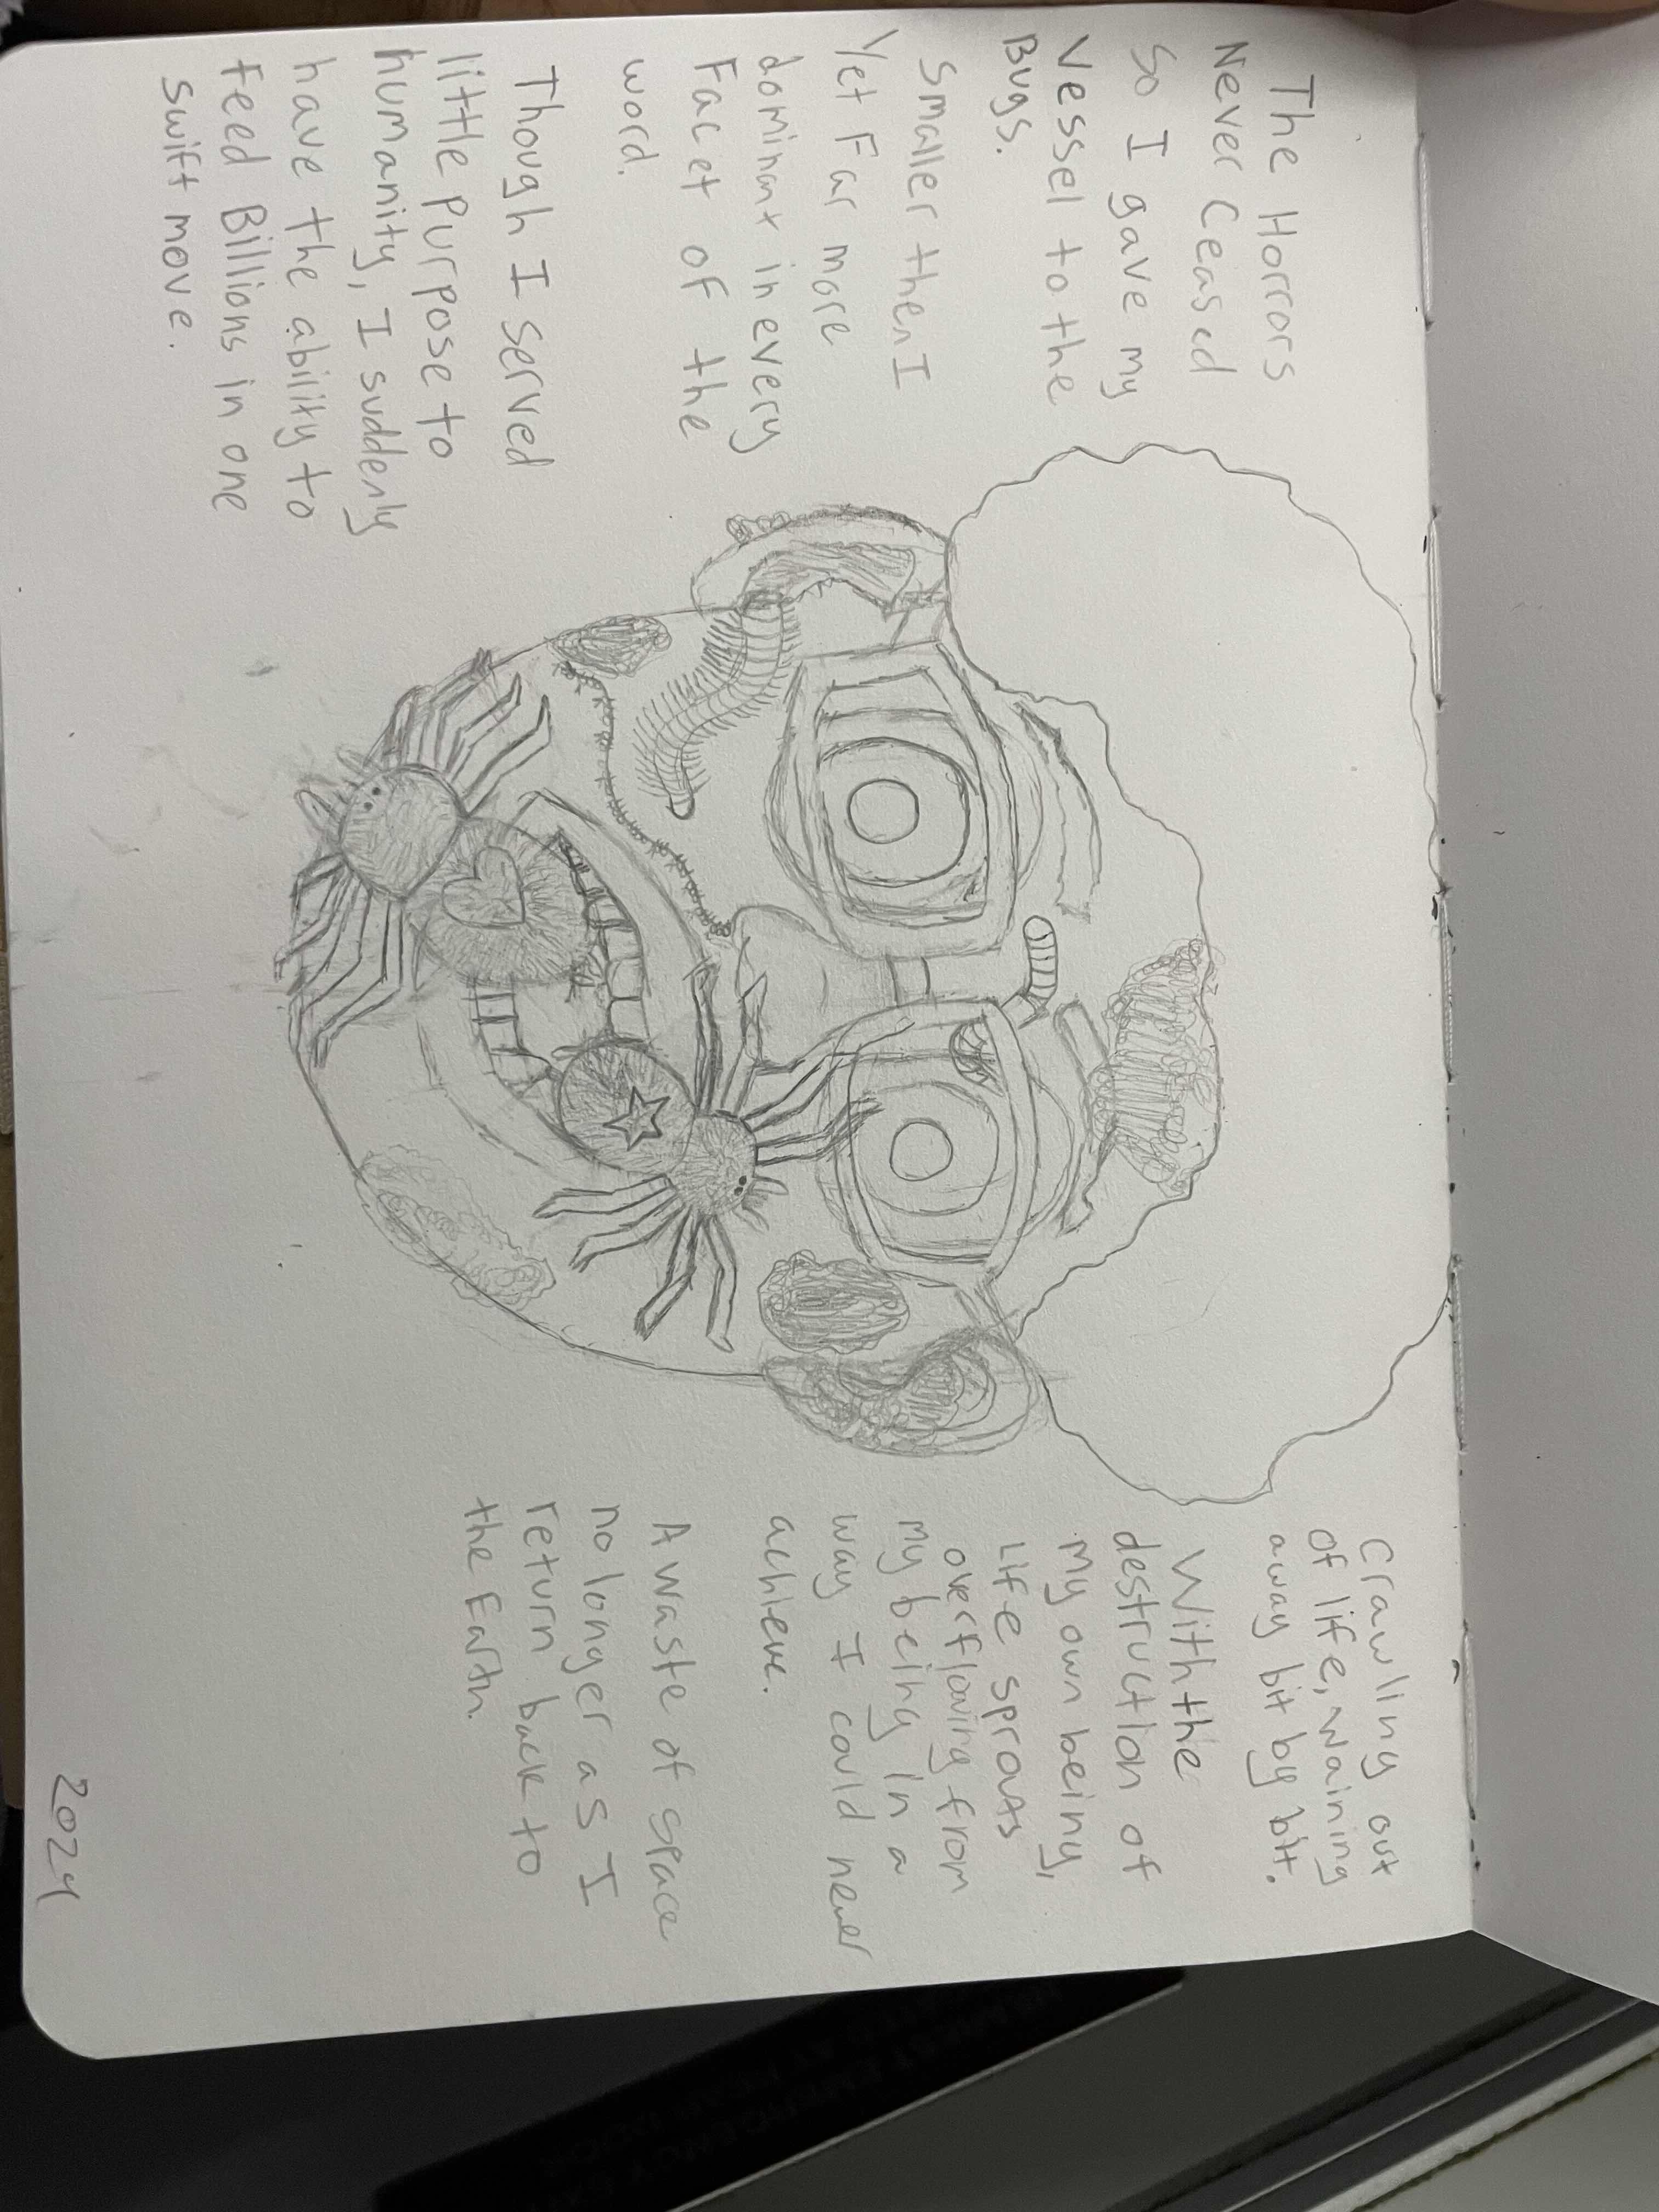 The Horrors
Never Ceased
So I gave my
Vessel to the
Bugs.
Smaller then I
Yet Far more
dominant in every
Facet of the
word.
Though I served
little purpose to
humanity, I suddenly
have the ability to
feed Billions in one
swift move.
Crawling out
of life, waining
away bit by bit.
With the
destruction of
my own being,
Life sprouts
overflowing from
my being in a
way I could never
achieve.
A waste of space
no longer as I
return back to
the Earth.
2024